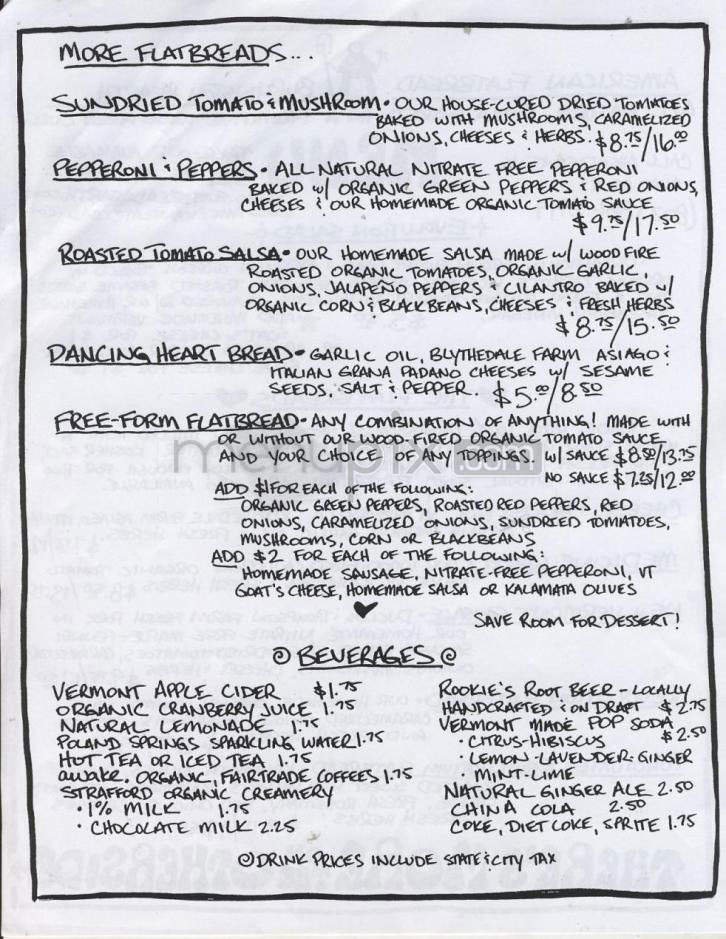 MORE FLATBREADS...
SUNDRIED TOMATO & MUSHROOM • OUR HOUSE-CURED DRIED TOMATOES
BAKED WITH MUSHROOMS, CARAMELIZED
ONIONS, CHEESES & HERBS. $8.75/16.00
PEPPERONI & PEPPERS • ALL NATURAL NITRATE FREE PEPPERONI
BAKED w/ ORGANIC GREEN PEPPERS & RED ONIONS,
CHEESES & OUR HOMEMADE ORGANIC TOMATO SAUCE
$9.75/17.50
ROASTED TOMATO SALSA • OUR HOMEMADE SALSA MADE w/ WOOD FIRE
ROASTED ORGANIC TOMATOES, ORGANIC GARLIC,
ONIONS, JALAPEÑO PEPPERS & CILANTRO BAKED w/
ORGANIC CORN & BLACKBEANS, CHEESES & FRESH HERBS
$8.75/15.50
DANCING HEART BREAD • GARLIC OIL, BLYTHEDALE FARM ASIAGO &
ITALIAN GRANA PADANO CHEESES w/ SESAME
SEEDS, SALT & PEPPER. $5.00/8.50
FREE-FORM FLATBREAD • ANY COMBINATION OF ANYTHING! MADE WITH
OR WITHOUT OUR WOOD-FIRED ORGANIC TOMATO SAUCE
AND YOUR CHOICE OF ANY TOPPINGS! w/ SAUCE $8.50/13.75
NO SAUCE $7.25/12.00
menupix.com
ADD $1 FOR EACH OF THE FOLLOWING:
ORGANIC GREEN PEPPERS, ROASTED RED PEPPERS, RED
ONIONS, CARAMELIZED ONIONS, SUNDRIED TOMATOES,
MUSHROOMS, CORN OR BLACKBEANS
ADD $2 FOR EACH OF THE FOLLOWING:
HOMEMADE SAUSAGE, NITRATE-FREE PEPPERONI, VT
GOAT'S CHEESE, HOMEMADE SALSA OR KALAMATA OLIVES
SAVE ROOM FOR DESSERT!
BEVERAGES
VERMONT APPLE CIDER $1.75
ORGANIC CRANBERRY JUICE 1.75
NATURAL LEMONADE 1.75
POLAND SPRINGS SPARKLING WATER 1.75
HOT TEA OR ICED TEA 1.75
awake. ORGANIC, FAIRTRADE COFFEES 1.75
STRAFFORD ORGANIC CREAMERY
• 1% MILK 1.75
• CHOCOLATE MILK 2.25
ROOKIE'S ROOT BEER - LOCALLY
HANDCRAFTED & ON DRAFT $2.75
VERMONT MADE POP SODA
• CITRUS-HIBISCUS $2.50
• LEMON-LAVENDER-GINGER
• MINT-LIME
NATURAL GINGER ALE 2.50
CHINA COLA 2.50
COKE, DIET COKE, SPRITE 1.75
DRINK PRICES INCLUDE STATE & CITY TAX